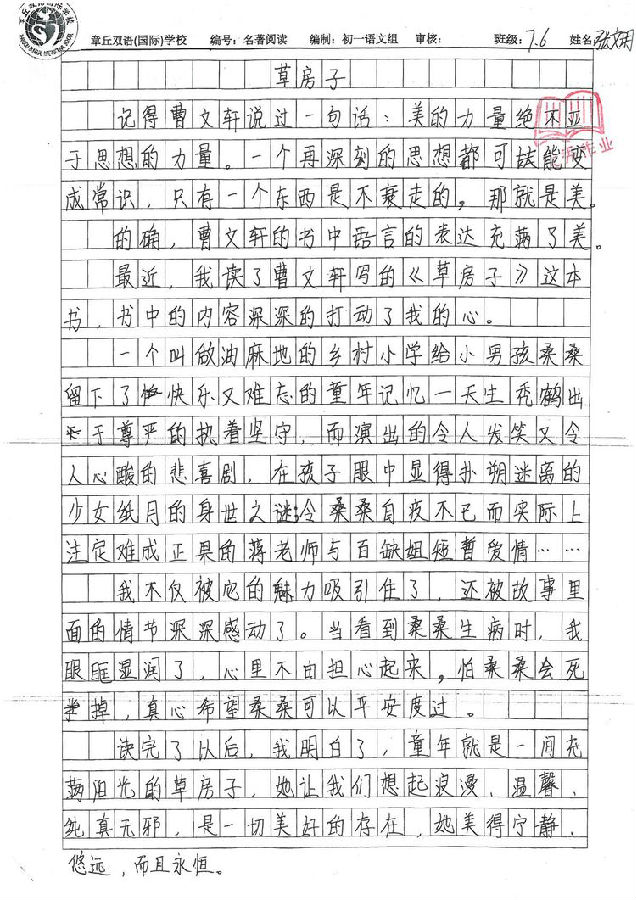 章丘双语(国际)学校 编号：名著阅读 编制：初一语文组 审核： 班级：7.6 姓名：张文朔
草房子
记得曹文轩说过一句话：美的力量绝不亚
于思想的力量。一个再深刻的思想都可能变
成常识，只有一个东西是不衰走的。那就是美。
的确，曹文轩的书中语言的表达充满了美。
最近，我读了曹文轩写的《草房子》这本
书，书中的内容深深的打动了我的心。
一个叫做油麻地的乡村小学给小男孩桑桑
留下了快乐又难忘的童年记忆一天生秃鹤出
于尊严的执着坚守，而演出的令人发笑又令
人心酸的悲喜剧，在孩子眼中显得扑朔迷离的
少女纸月的身世之谜；令桑桑自疚不已而实际上
注定难成正果的蒋老师与百缺姐短暂爱情……
我不仅被它的魅力吸引住了，还被故事里
面的情节深深感动了。当看到桑桑生病时，我
眼眶湿润了，心里不由担心起来，怕桑桑会死
掉，真心希望桑桑可以平安度过。
读完了以后，我明白了，童年就是一间充
满阳光的草房子，她让我们想起浪漫、温馨、
纯真无邪，是一切美好的存在，她美得宁静、
悠远，而且永恒。